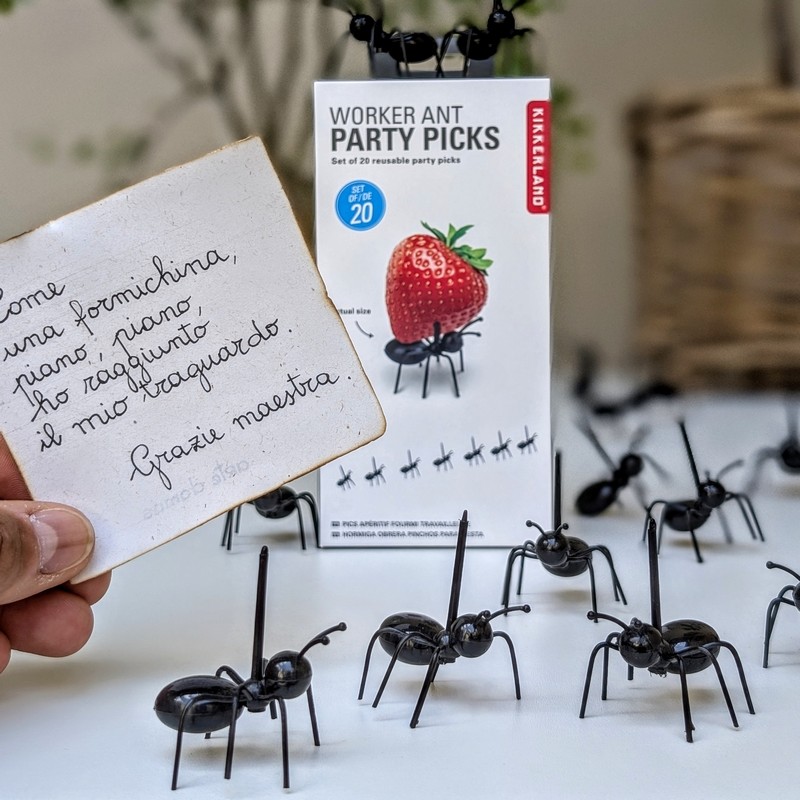 Come
una formichina,
piano, piano,
ho raggiunto
il mio traguardo.
Grazie maestra.
arte domus
WORKER ANT
PARTY PICKS
Set of 20 reusable party picks
KIKKERLAND®
SET
OF/DE
20
size
PICS APÉRITIF FOURMI
HORMIGA OBRERA PINCHOS PARA